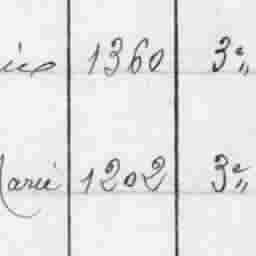 1360 3e"
Marie 1202 3e"